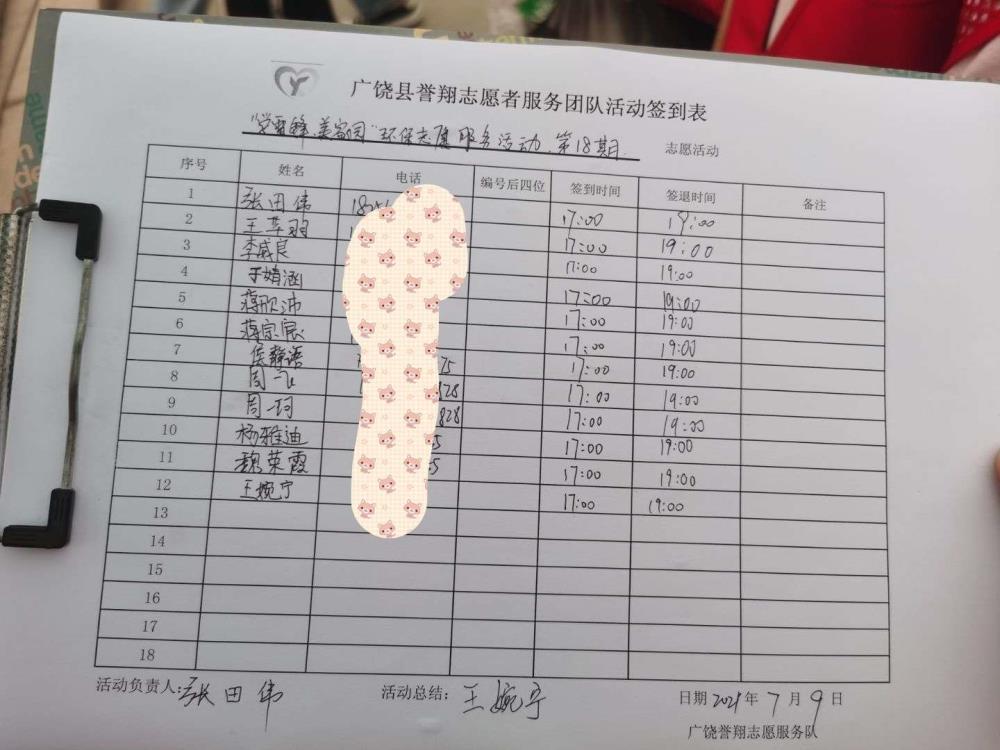 广饶县誉翔志愿者服务团队活动签到表
"学雷锋 美家园"环保志愿服务活动 第18期 志愿活动
序号 姓名 电话 编号后四位 签到时间 签退时间 备注
1 张田伟 17:00 19:00
2 王 羽 17:00 19:00
3 李威良 17:00 19:00
4 于婧涵 17:00 19:00
5 蒋欣沛 17:00 19:00
6 蒋宗宸 17:00 19:00
7 侯静语 75 17:00 19:00
8 周一 828 17:00 19:00
9 周一珂 828 17:00 19:00
10 杨雅迪 5 17:00 19:00
11 魏荣霞 5 17:00 19:00
12 王婉宁 17:00 19:00
13
14
15
16
17
18
活动负责人:张田伟 活动总结: 王婉宁 日期 2021年 7 月 9 日
广饶誉翔志愿服务队